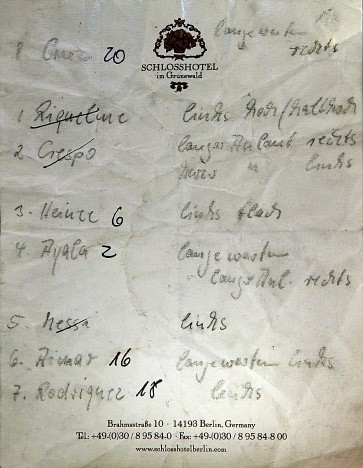 lange warten
rechts
1 Cruz 20
SCHLOSSHOTEL
im Grunewald
1 Riquelme links hoch/halbhoch
2 Crespo langer Anlauf rechts
kurz " links
3. Heinze 6 links flach
4. Ayala 2 lange warten
lange Anl. rechts
5. Messi links
6. Aimar 16 lange warten links
7. Rodriguez 18 links
Brahmsstraße 10 · 14193 Berlin, Germany
Tel.: +49-(0)30 / 8 95 84-0 · Fax: +49-(0)30 / 8 95 84-8 00
www.schlosshotelberlin.com